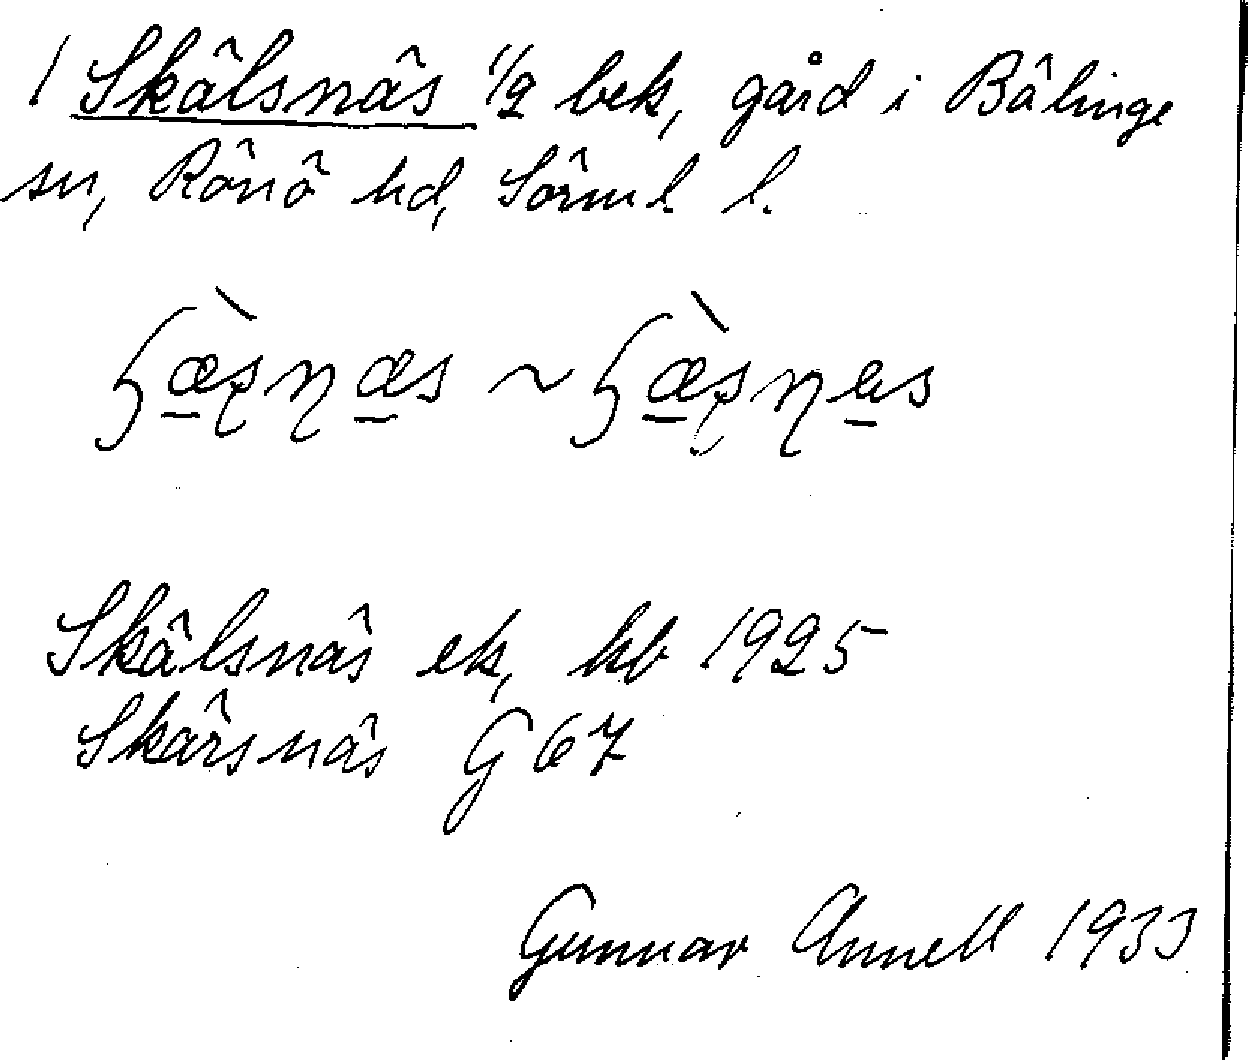 1 Skälsnäs 1/2 bek, gård i Bälinge
sn, Rönö hd, Sörml. l.
ʃæ̀ʂɳæs ~
Skälsnäs ek, kb 1925
Skärsnäs G 67
Gunnar Annell 1933